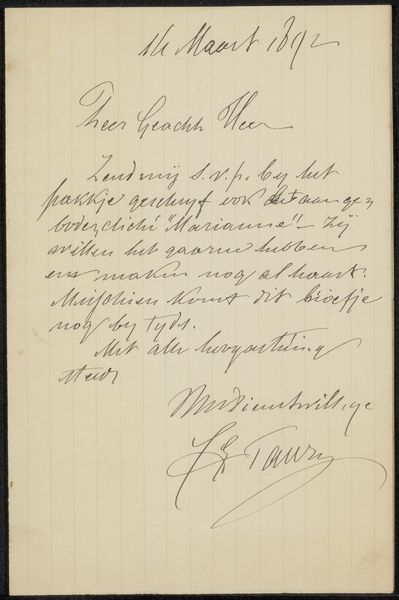 14 Maart 1892
Zeer Geacht Heer
Zend mij s.v.p. by het
pakkje geschryf ook het aange=
boden cliché "Marianne" – Zij
willen het gaarne hebben
en maken nog al haast.
Misschien komt dit briefje
nog by tyds.
Met alle hoogachting
steeds
Uw Dienstwillige